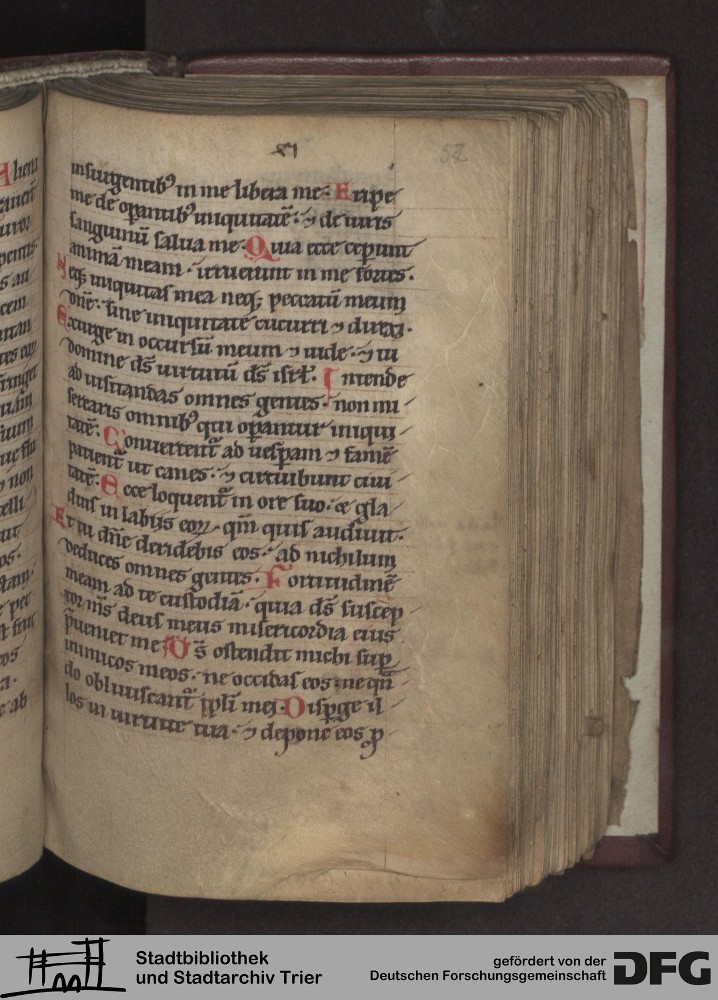 xı
52
insurgentib⁹ in me libera me· Eripe
me de oꝑantib⁹ iniquitatē· ⁊ de uiris
sanguinū salua me· Quia ecce ceperunt
animā meam· irruerunt in me fortes·
Neq; iniquitas mea neq; peccatū meum
dn̄e· sine iniquitate cucurri ⁊ direxi·
Exurge in occursū meum ⁊ uide· ⁊ tu
domine ds̄ uirtutū ds̄ isrl̄· Intende
ad uisitandas omnes gentes· non mi
serearis omnib⁹ qui oꝑantur iniqui
tatē· Conuertent̄ ad uesꝑam ⁊ famē
patient̄ ut canes· ⁊ circuibunt ciui
tatē· Ecce loquent̄ in ore suo· ⁊ gla
dius in labijs eoꝝ· qm̄ quis audiuit·
Et tu dn̄e deridebis eos· ad nichilum
deduces omnes gentes· Fortitudinē
meam ad te custodiā· quia ds̄ suscep
tor ms̄ deus meus misericordia eius
p̄ueniet me· Ds̄ ostendit michi suꝑ
inimicos meos· ne occidas eos· ne qn̄
do obliuiscant̄ ipli mei· Disꝑge il
los in uirtute tua· ⁊ depone eos ꝓ
Stadtbibliothek
und Stadtarchiv Trier
gefördert von der
Deutschen Forschungsgemeinschaft
DFG